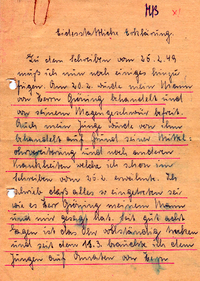 H/3
Eidesstattliche Erklärung.
Zu dem Schreiben vom 26.2.49
muß ich nun noch einiges hinzu
fügen. Am 20.2. wurde mein Mann
von Herrn Gröning behandelt und
von seinem Magengeschwür befreit.
Auch mein Junge wurde von ihm
behandelt auf Grund einer Mittel-
ohrvereiterung und noch anderen
Krankheiten welche ich schon im
Schreiben vom 26.2. erwähnte. Ich
schrieb daß alles so eingetreten sei
wie es Herr Gröning meinem Mann
und mir gesagt hat. Seit gut acht
Tagen ist das Ohr vollständig trocken
und seit dem 11.3. brauchte ich dem
Jungen auf Anraten von Herrn